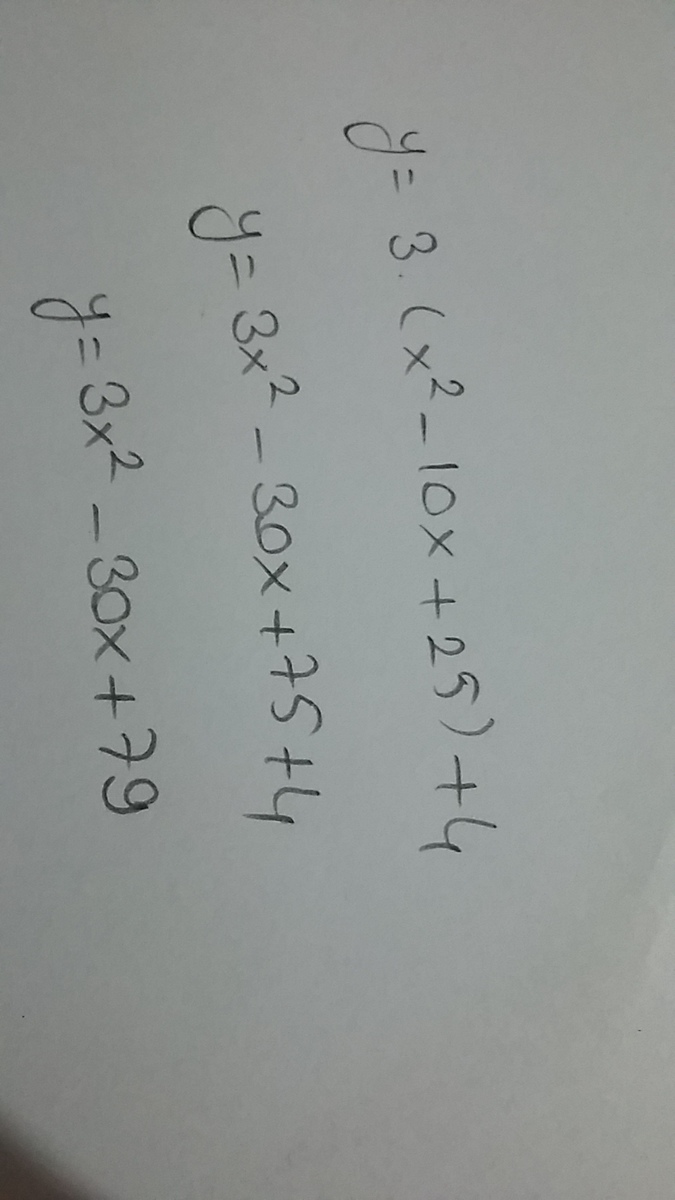 y = 3.(x² - 10x + 25) + 4
y = 3x² - 30x + 75 + 4
y = 3x² - 30x + 79